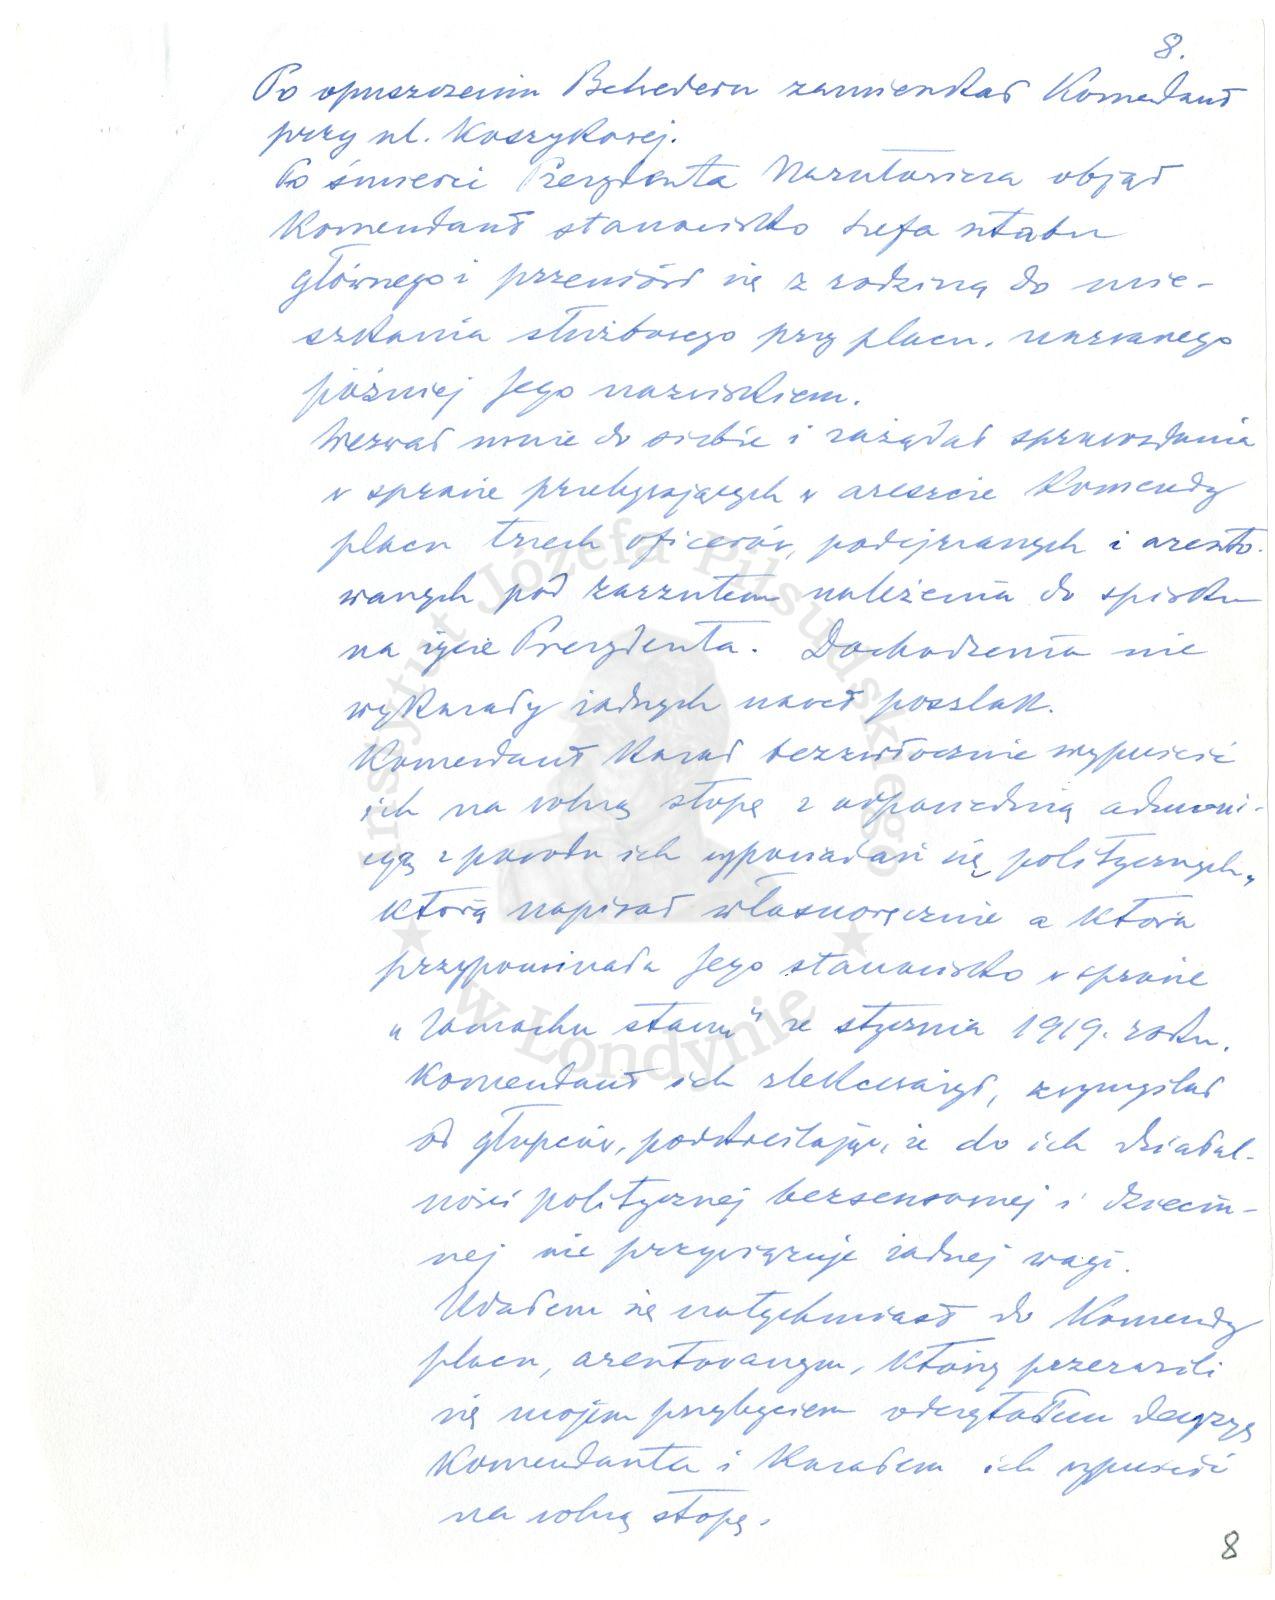 8.
Po opuszczeniu Belwederu zamieszkał Komendant
przy ul. Koszykowej.
Po śmierci Prezydenta Narutowicza objął
Komendant stanowisko szefa sztabu
głównego i przeniósł się z rodziną do mie-
szkania służbowego przy placu, nazwanego
później Jego nazwiskiem.
Wezwał mnie do siebie i zażądał sprawozdania
w sprawie przebywających w areszcie Komendy
placu trzech oficerów, podejrzanych i areszto-
wanych pod zarzutem należenia do spisku
na życie Prezydenta. Dochodzenia nie
wykazały żadnych nawet poszlak.
Komendant kazał bezzwłocznie wypuścić
ich na wolną stopę z odpowiednią admoni-
cją z powodu ich wypowiadań się politycznych,
którą napisał własnoręcznie a która
przypominała Jego stanowisko w sprawie
"zamachu stanu" ze stycznia 1919. roku.
Komendant ich zlekceważył, zwymyślał
od głupców, podkreślając, że do ich działal-
ności politycznej bezsensownej i dziecin-
nej nie przywiązuje żadnej wagi.
Udałem się natychmiast do Komendy
placu, aresztowanym, którzy przerazili
się mojem przybyciem odczytałem decyzję
Komendanta i kazałem ich wypuścić
na wolną stopę.
8
Instytut Józefa Piłsudskiego
w Londynie